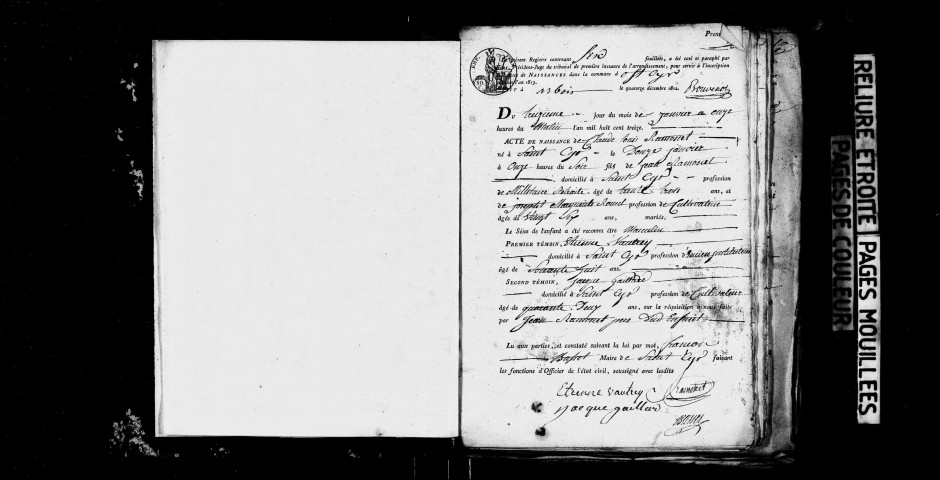 Prem
Le présent Registre contenant six feuillets, a été coté et paraphé par
Président-Juge du tribunal de première instance de l'arrondissement, pour servir à l'inscription
de NAISSANCES dans la commune d St Cyr
l'an 1813.
à Arbois le quatorze décembre 1812. Bouvenot
DU treizieme jour du mois de janvier a onze
heures du Matin l'an mil huit cent treize.
ACTE DE NAISSANCE de Claude Louis Ramonet
né à Saint Cyr le Douze janvier
à Onze heures du Soir fils de jean Ramonet
domicilié à Saint Cyr profession
de Millitaire Retraité âgé de trente trois ans, et
de Marguerite profession de Cultivatrice
âgée de Vingt Six ans, mariés.
Le Sexe de l'enfant a été reconnu être Masculin
PREMIER TÉMOIN, Etienne Vautrey
domicilié à Saint Cyr profession d'ancien instituteur
âgé de Soixante huit ans.
SECOND TÉMOIN, Jacque Gaillard
domicilié à Saint Cyr profession de Cultivateur
âgé de quarante Deux ans, sur la réquisition à nous faite
par Jean Ramonet pere Dud Enfant
Lu aux parties, et constaté suivant la loi par moi, françois
Maire de Saint Cyr faisant
les fonctions d'Officier de l'état civil, soussigné avec lesdits
Etienne vautrey Ramonet
jacque gaillard
RELIURE ETROITE PAGES MOUILLEES
PAGES DE COULEUR